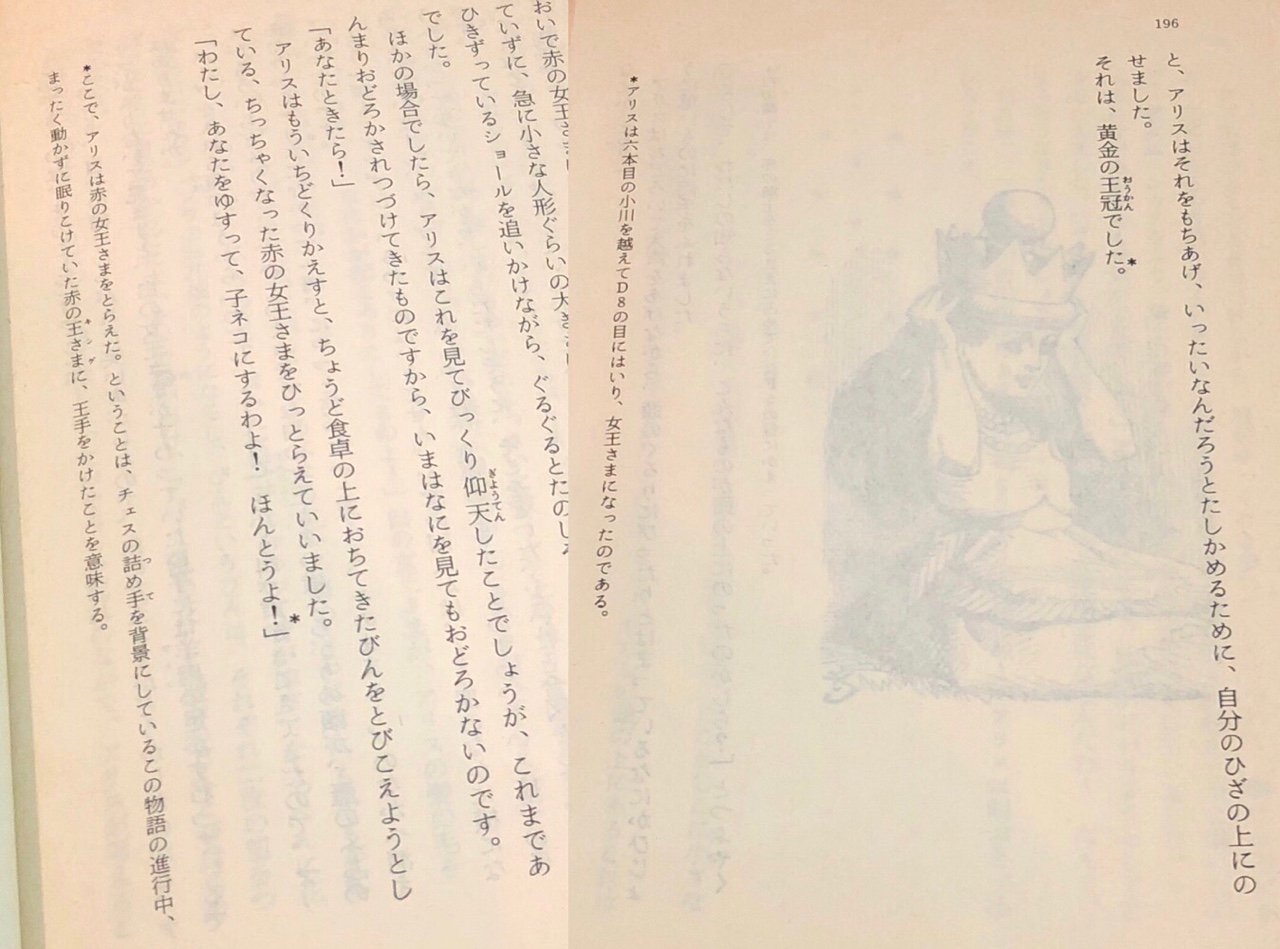 196
と、アリスはそれをもちあげ、いったいなんだろうとたしかめるために、自分のひざの上にの
せました。
それは、黄金の王冠でした。*
*アリスは六本目の小川を越えてD8の目にはいり、女王さまになったのである。
おいで赤の女王さま
ていずに、急に小さな人形ぐらいの大き
ひきずっているショールを追いかけながら、ぐるぐるとたのし
でした。
ほかの場合でしたら、アリスはこれを見てびっくり仰天したことでしょうが、これまであ
んまりおどろかされつづけてきたものですから、いまはなにを見てもおどろかないのです。
「あなたときたら！」
アリスはもういちどくりかえすと、ちょうど食卓の上におちてきたびんをとびこえようとし
ている、ちっちゃくなった赤の女王さまをひっとらえていいました。
「わたし、あなたをゆすって、子ネコにするわよ！　ほんとうよ！」*
*ここで、アリスは赤の女王さまをとらえた。ということは、チェスの詰め手を背景にしているこの物語の進行中、
まったく動かずに眠りこけていた赤の王さまに、王手をかけたことを意味する。